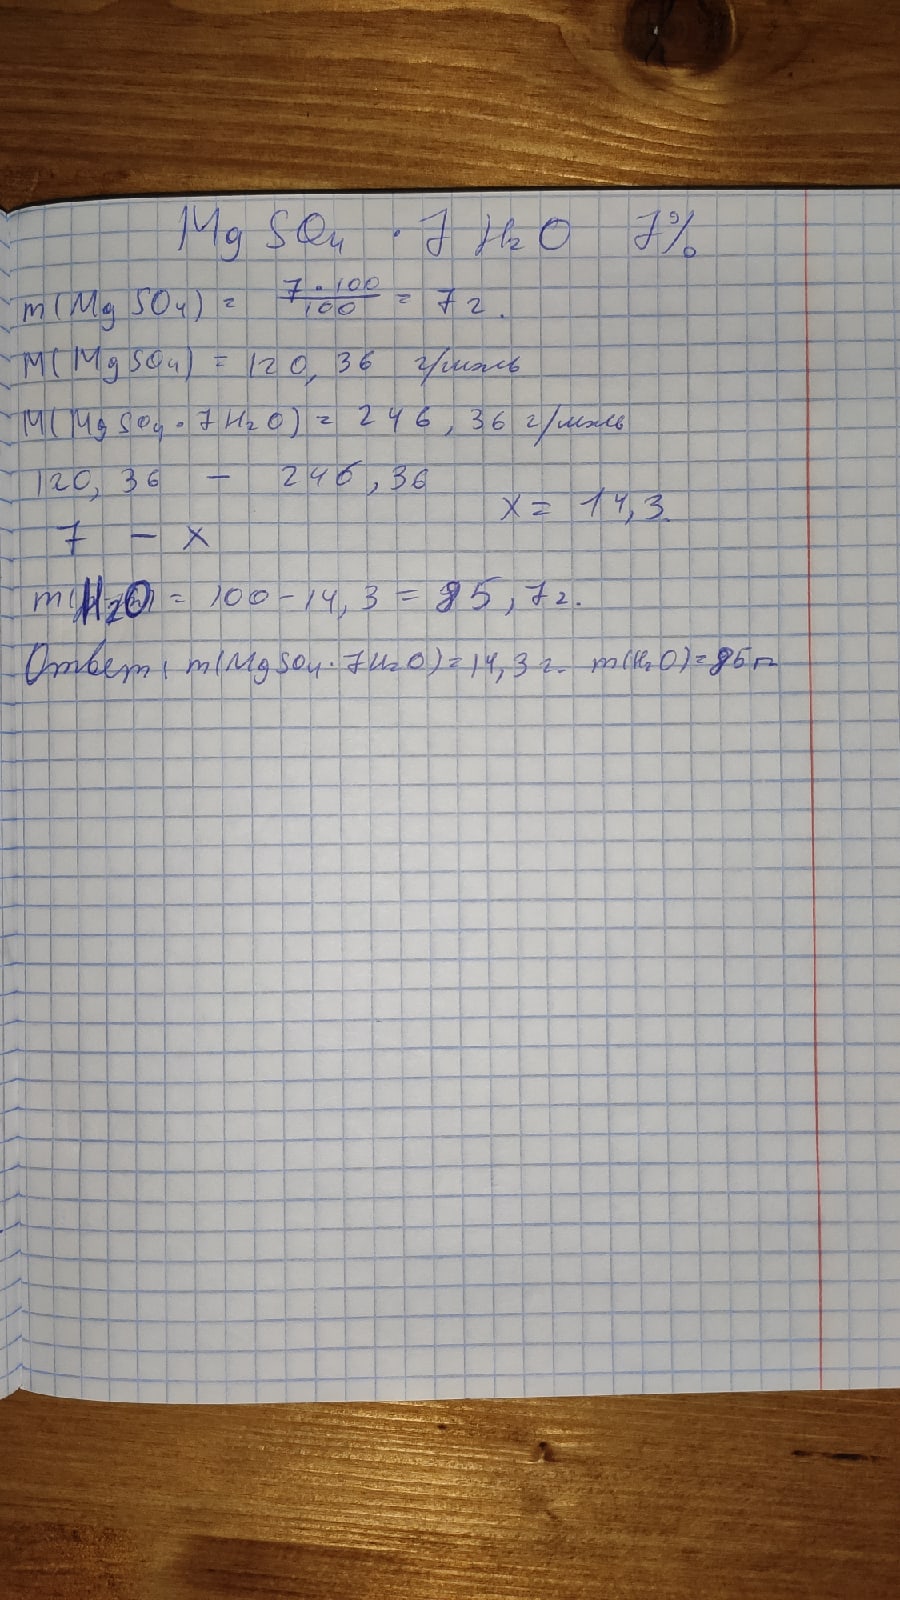 MgSO₄ · 7 H₂O 7%
m(MgSO₄) = 7·100/100 = 7 г.
M(MgSO₄) = 120,36 г/моль
M(MgSO₄·7H₂O) = 246,36 г/моль
120,36 – 246,36
x = 14,3
7 – x
m(H₂O) = 100-14,3 = 85,7 г.
Ответ: m(MgSO₄·7H₂O)=14,3 г. m(H₂O)=85 г